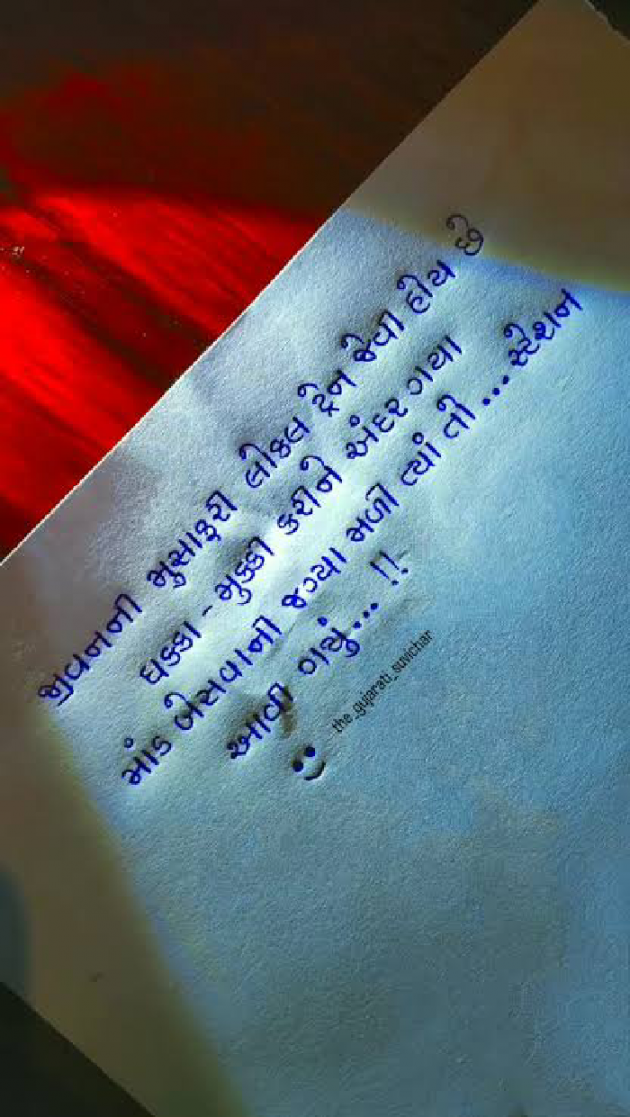 જીવનની મુસાફરી લોકલ ટ્રેન જેવી હોય છે
ધક્કા - મુક્કી કરીને અંદર ગયા
માંડ બેસવાની જગ્યા મળી ત્યાં તો ... સ્ટેશન
આવી ગયું... !!
the_gujarati_suvichar